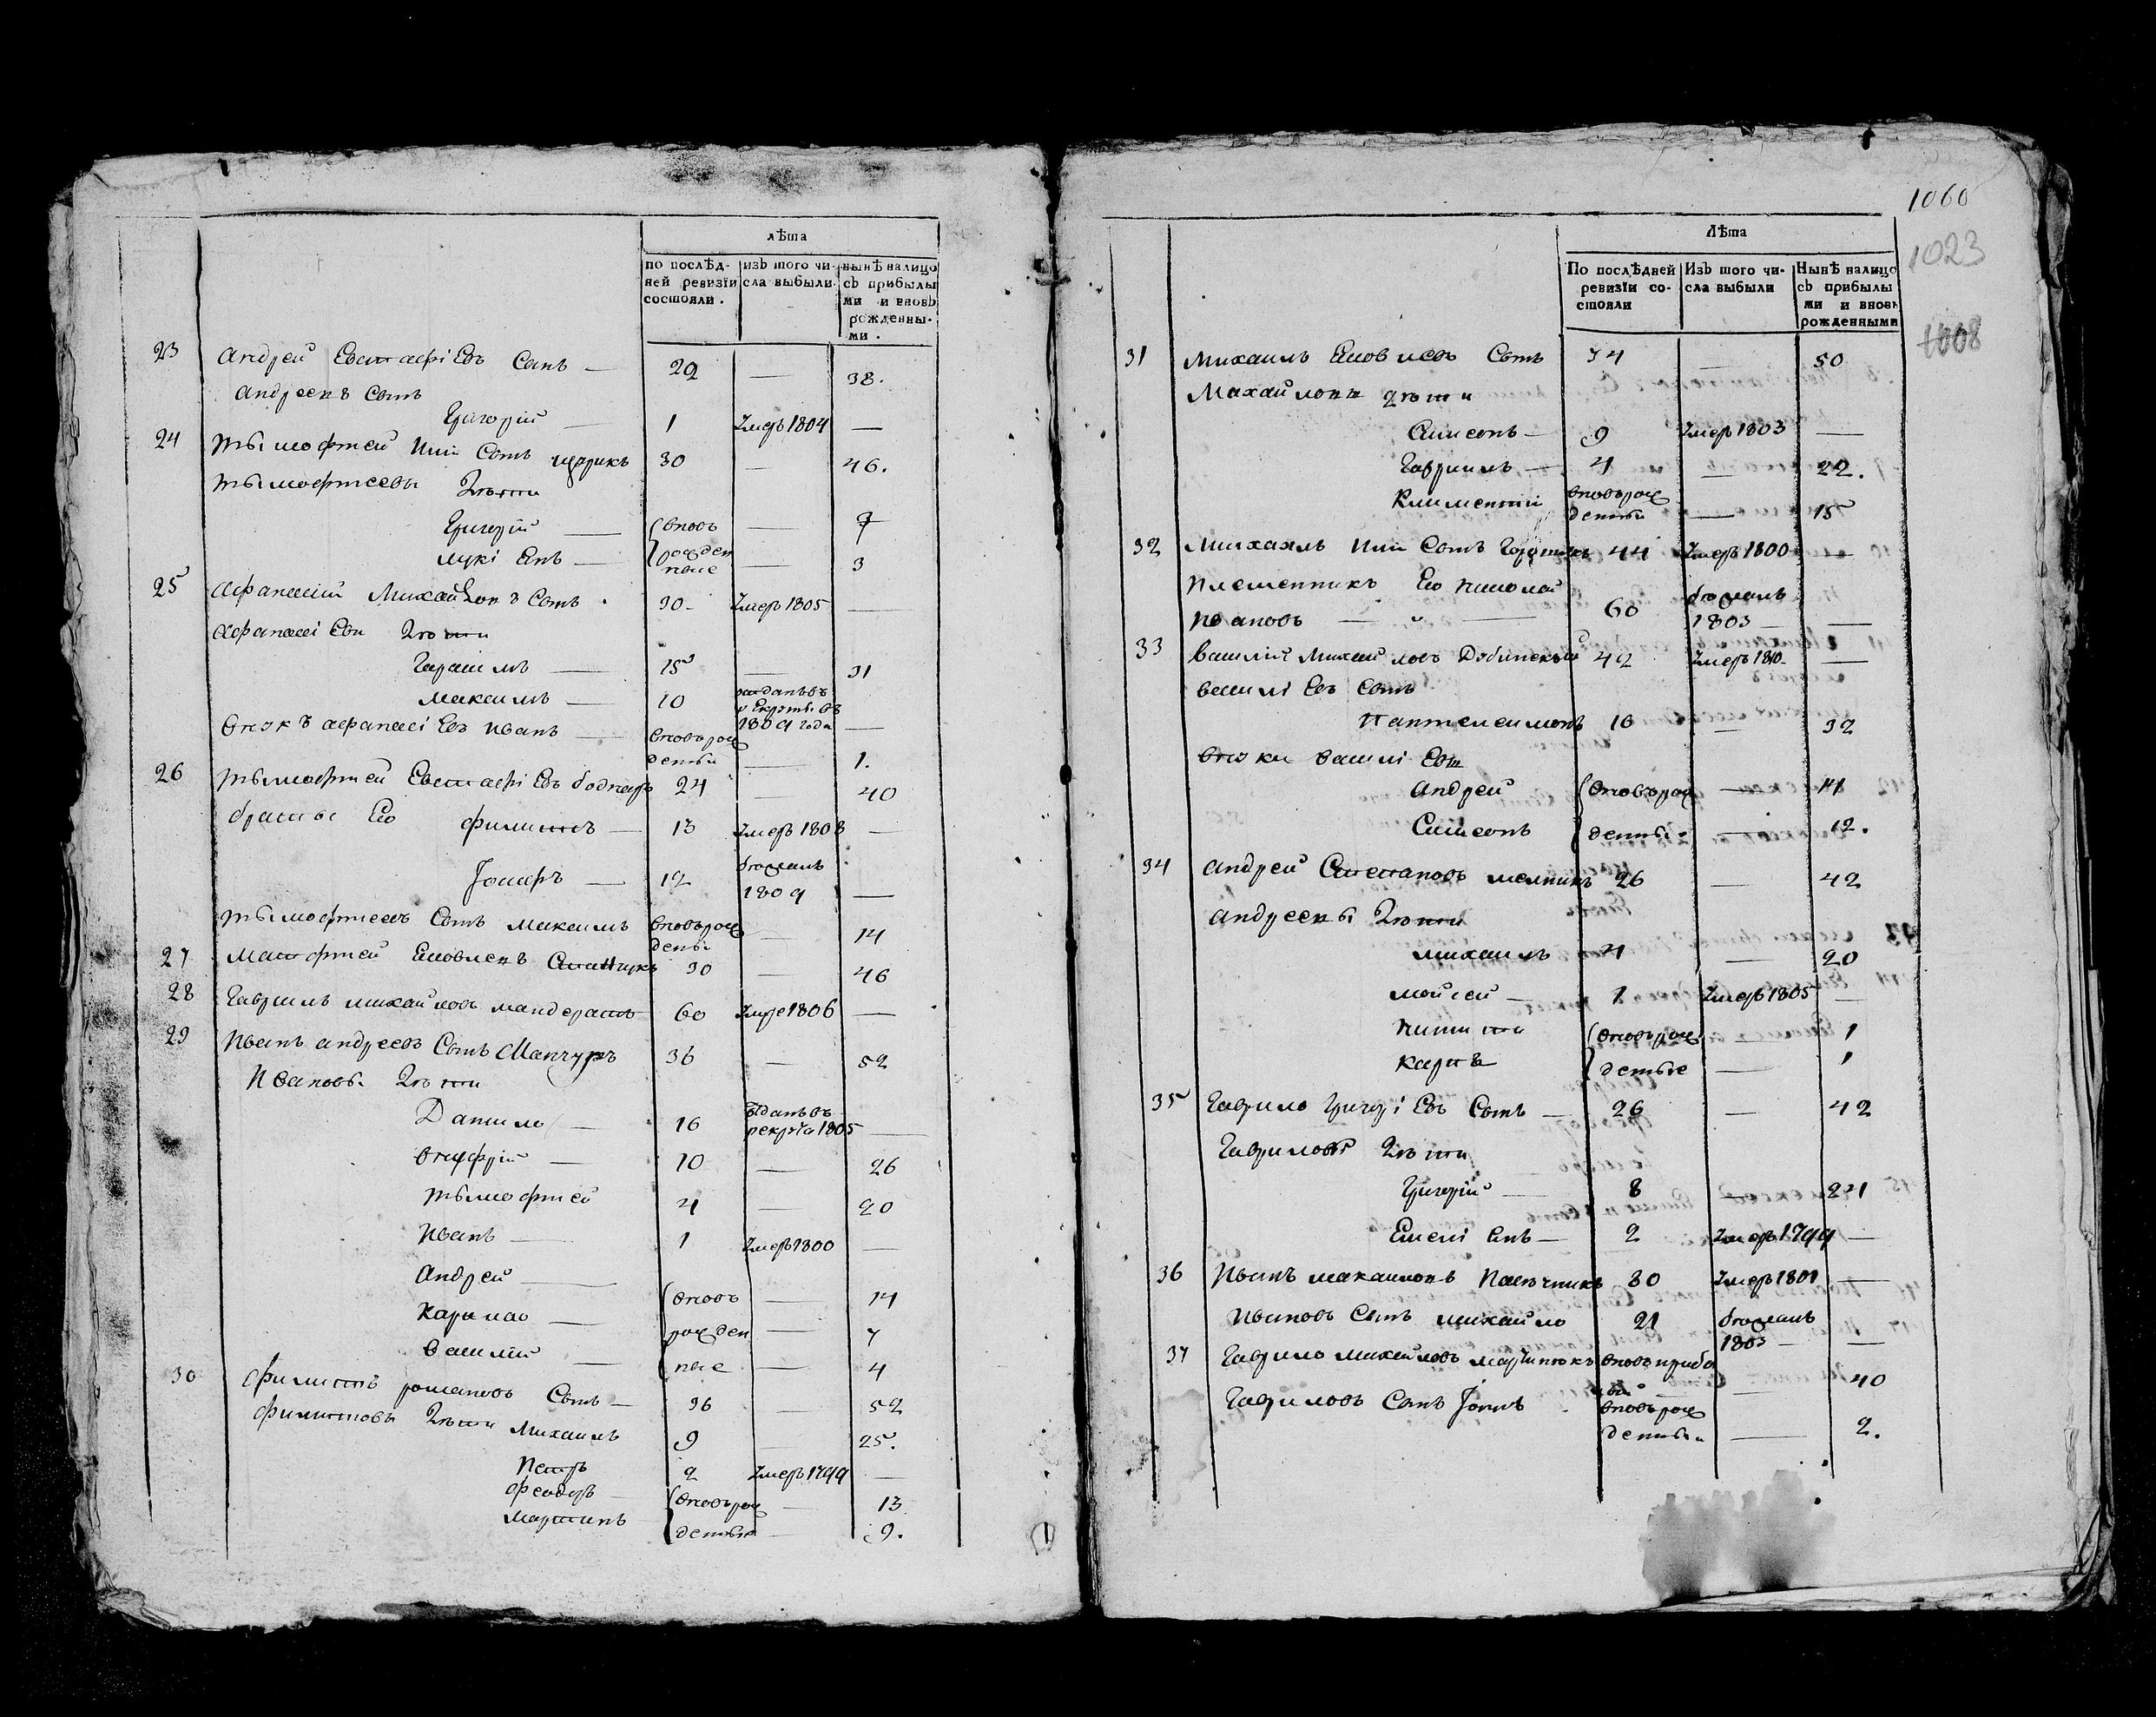 лѣта
по послѣдней ревизіи состояли.
изъ того числа выбыли.
нынѣ налицо съ прибылыми и вновь рожденными.
23 Андрей Евстафіевъ Сынъ — 22 — 38.
Андреевъ Сынъ
Григорій — 1 Умеръ 1804 —
24 Тымофтей Сынъ 30 — 46.
Тымофтеевы Дѣти
Григорій — вновь — 7
Лукіянъ — рожденные — 3
25 Афанасій Михайловъ Сынъ 30 Умеръ 1805 —
Афанасіевы Дѣти
Гарасимъ — 15 — 31
Максимъ — 10 отданъ въ рекруты въ 1809 года —
Внукъ Афанасіевъ Иванъ — вновь рожденный — 1.
26 Тымофтей Евстафіевъ Боднаръ 24 — 40
братья Его Филиппъ — 13 Умеръ 1808 —
Іосифъ — 12 бѣжалъ 1809 —
Тымофтеевъ Сынъ Максимъ вновь рожденный — 14
27 Матфтей Яковлевъ 30 — 46
28 Гаврилъ Михайловъ 60 Умре 1806 —
29 Иванъ Андреевъ Сынъ Манчуръ 36 — 52
Ивановы Дѣти
Данило — 16 отданъ въ рекруты 1805 —
Онуфрій — 10 — 26
Тымофтей 4 — 20
Иванъ — 1 Умеръ 1800 —
Андрей — вновь — 14
Карпло — рожден — 7
Василій — ные — 4
30 Филиппъ Романовъ Сынъ — 36 — 52
Филиповы Дѣти Михаилъ 9 — 25.
Петръ 2 Умеръ 1799 —
Феодоръ — вновь рож — 13
Мартинъ денные — 9.
1060
1023
1008
Лѣта
По послѣдней ревизіи состояли
Изъ того числа выбыли
Нынѣ налицо съ прибылыми и вновь рожденными
31 Михаилъ Яковлевъ Сынъ 34 — 50
Михайловы дѣти
Симеонъ — 9 Умеръ 1803 —
Гаврилъ — 4 — 22.
Климентій вновь рожденный — 15
32 Михаилъ Сынъ 44 Умеръ 1800 —
Племенникъ Его Николай
Ивановъ — 60 бѣжалъ 1803 —
33 Василій Михайловъ 42 Умеръ 1810 —
Василіевъ Сынъ
Пантелеимонъ 16 — 32
Внуки Василіевы
Андрей вновь рож — 14
Симеонъ денные — 12.
34 Андрей Степановъ Мелникъ 26 — 42
Андреевы Дѣти
Михаилъ 4 — 20
Мойсей — 1 Умеръ 1805 —
Никита вновь рож — 1
Карпъ денные — 1
35 Гаврило Григоріевъ Сынъ — 26 — 42
Гавриловы Дѣти
Григорій — 8 — 24
Емеліянъ — 2 Умеръ 1799 —
36 Иванъ Пасѣчникъ 80 Умеръ 1801 —
Ивановъ Сынъ Михайло 21 бѣжалъ 1803 —
37 Гаврило Михайловъ Мартинюкъ вновь прибылый — 40
Гавриловъ Сынъ вновь рожденный — 2.